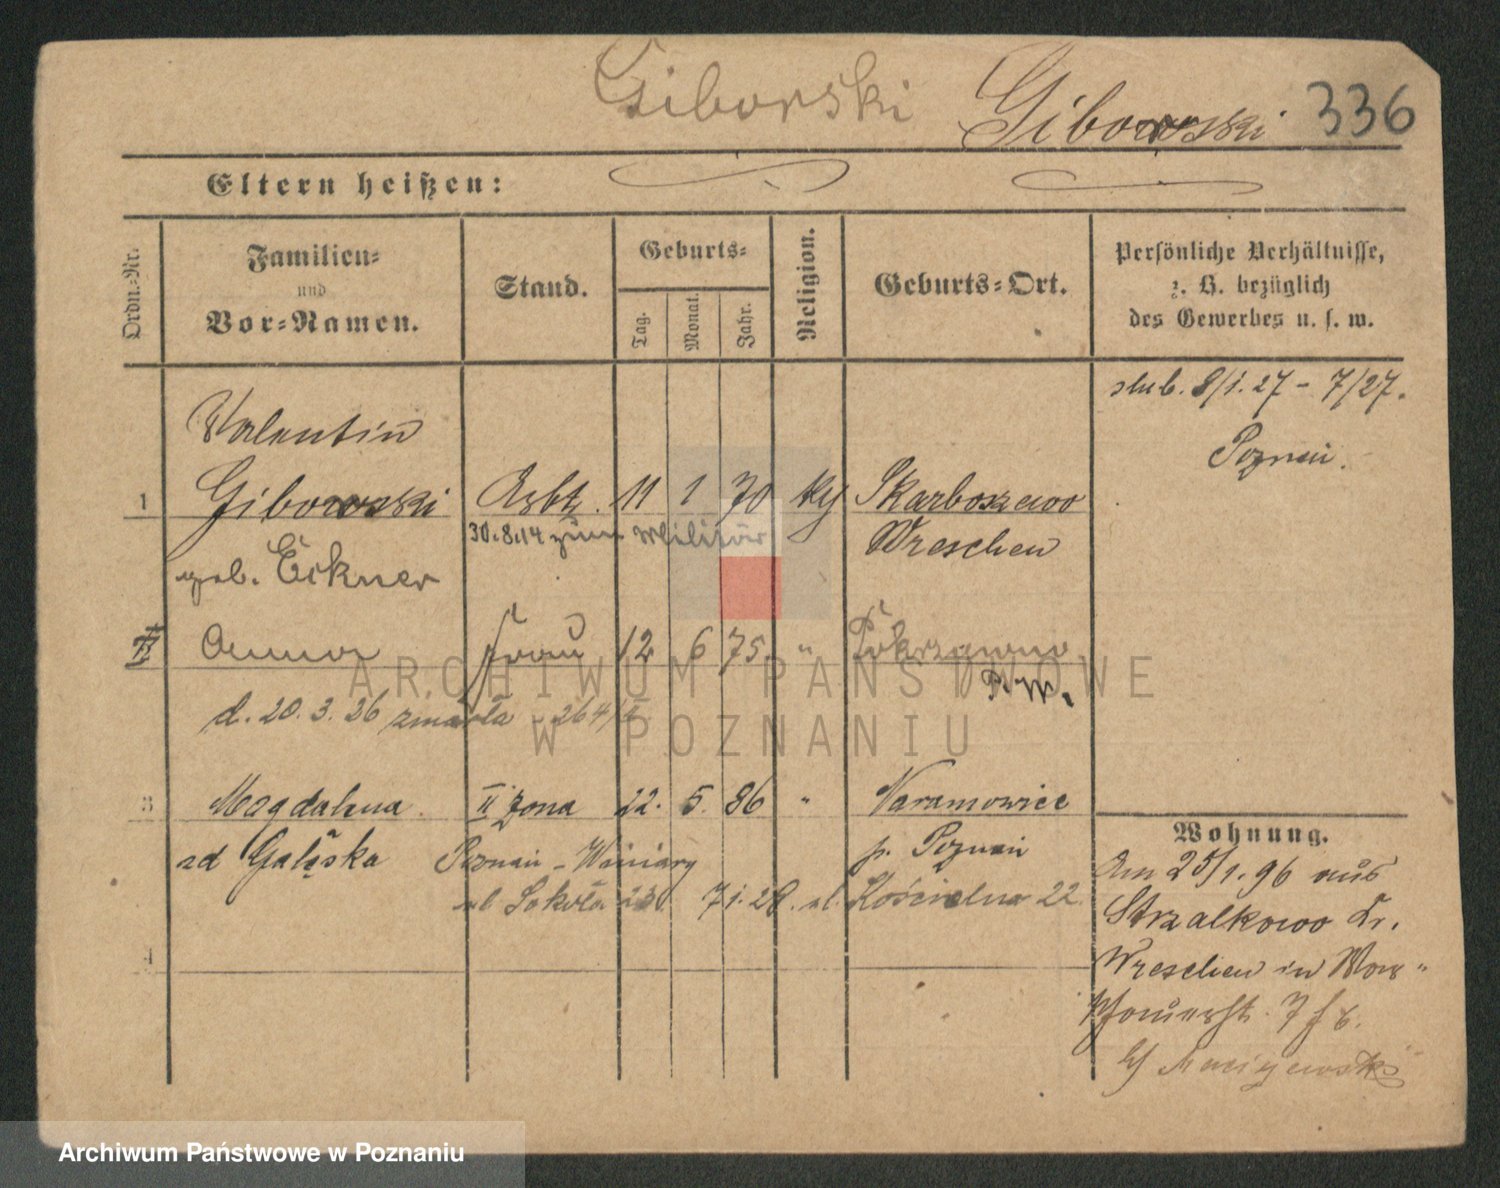 Giborski Giborski 336
Eltern heißen:
Ordn.-Nr.
Familien-
und
Vor-Namen.
Stand.
Geburts-
Tag.
Monat.
Jahr.
Religion.
Geburts-Ort.
Persönliche Verhältnisse,
z. B. bezüglich
des Gewerbes u. s. w.
ślub. 8/1.27 - 7/27.
Poznań.
Valentin
1 Giborski Arbtr. 11 1 70 kg Skarboszewo
30.8.14 zum Militär
Wreschen
geb. Eikner
II Anna Frau 12 6 75. " Pokrzywno
P.W.
d. 20. 3. 26 zmarła 264/II
3 Magdalena II żona 22. 5. 86 " Naramowice
zd Gałęska Poznań - Winiary p. Poznań
ul Sokoła 7 1. 28. ul. Kościelna 22.
4
Wohnung.
Am 25/1.96 aus
Strzalkowo Kr.
Wreschen in
7
ARCHIWUM PAŃSTWOWE
W POZNANIU
Archiwum Państwowe w Poznaniu